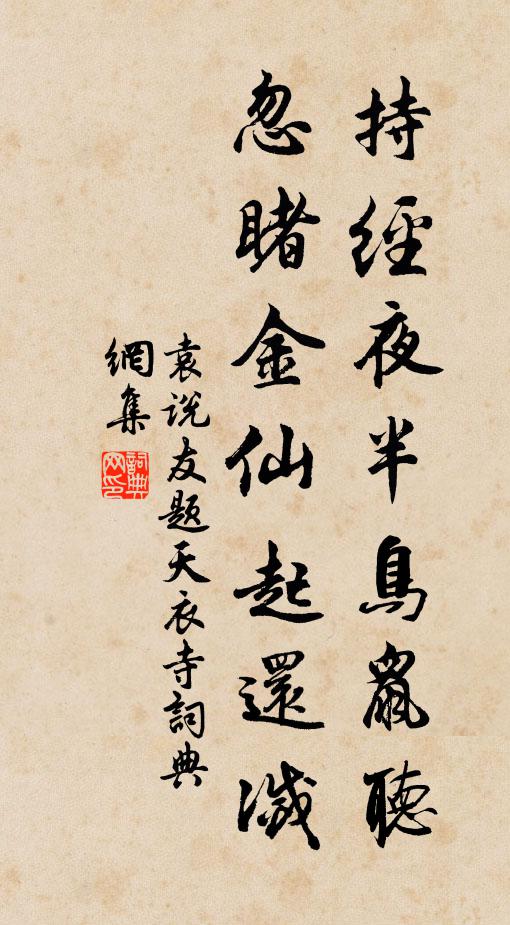 持經夜半鳥鼠聽
忽睹金仙起還滅
袁說友題天衣寺詞典
網集
詞典網印